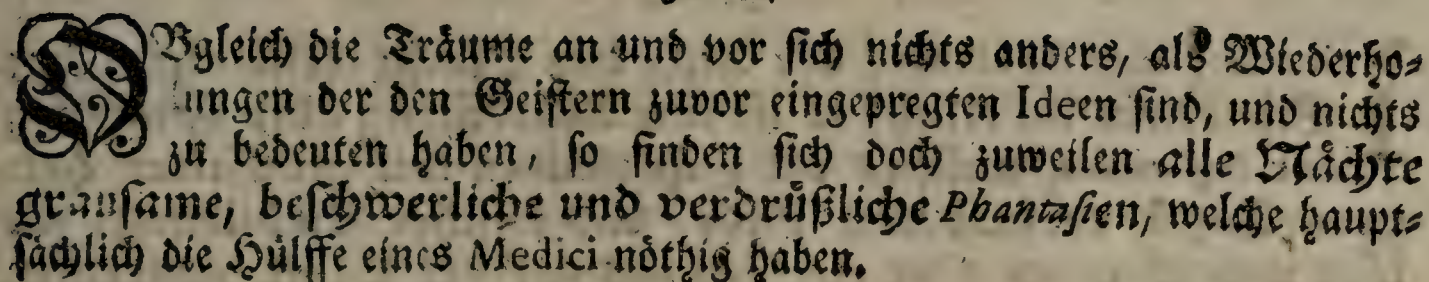 OBgleich die Träume an und vor sich nichts anders, als Wiederho-
lungen der den Geistern zuvor eingepregten Ideen sind, und nichts
zu bedeuten haben, so finden sich doch zuweilen alle Nächte
grausame, beschwerliche und verdrüßliche Phantasien, welche haupt-
sächlich die Hülffe eines Medici nöthig haben.